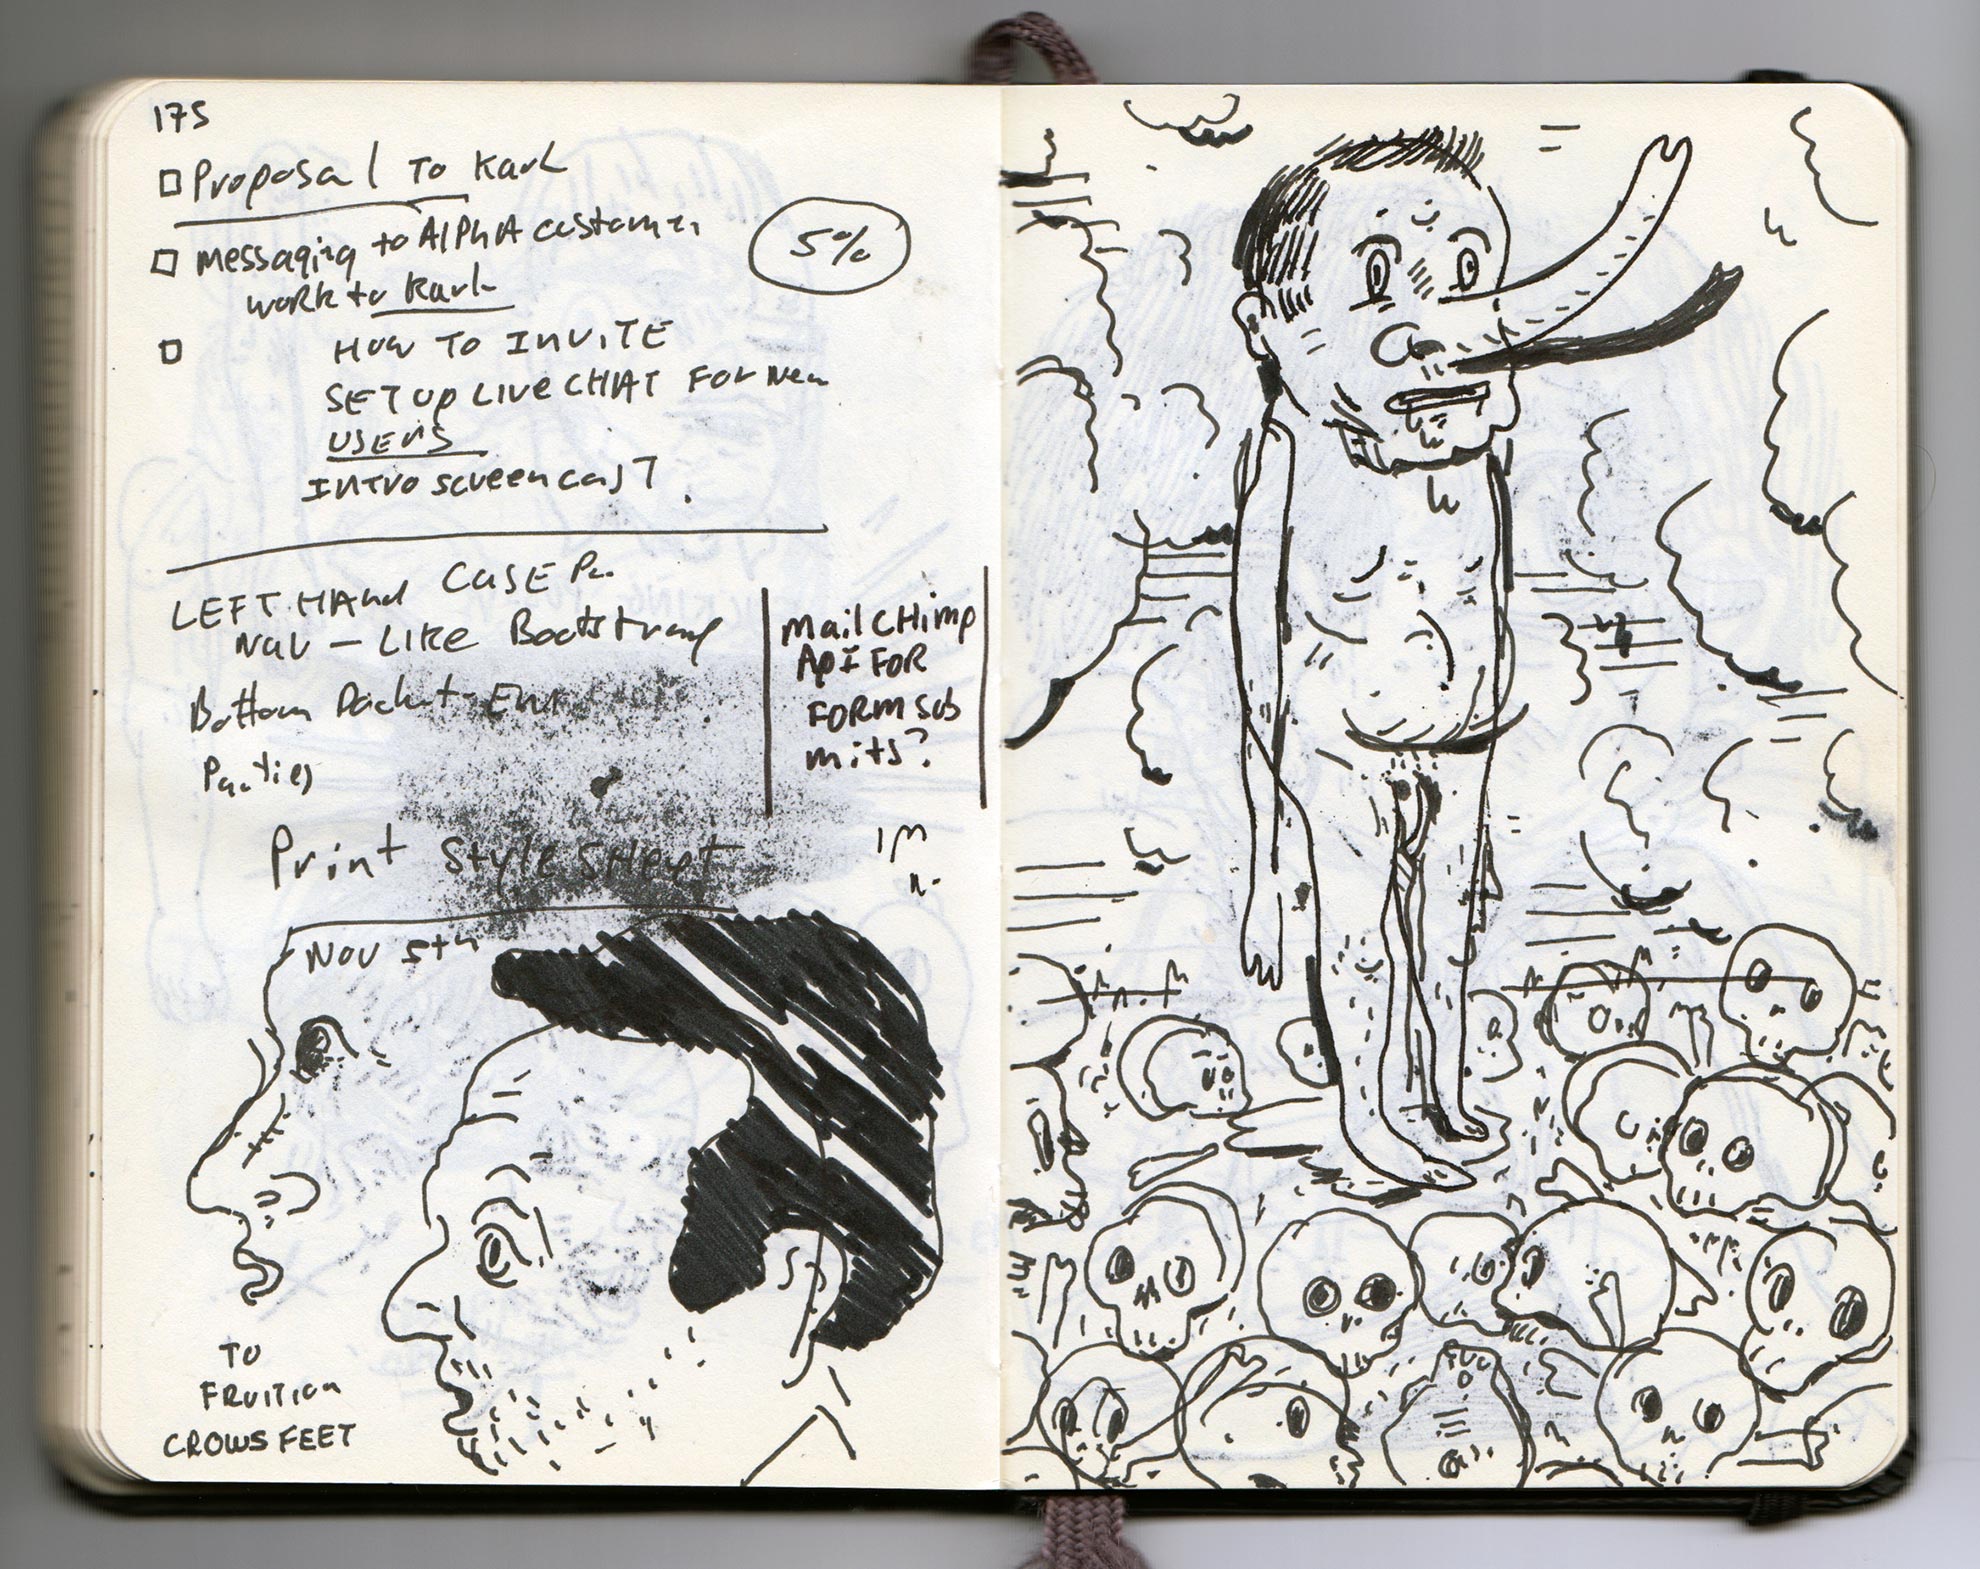 175
Proposal to Karl
messaging to AlPHA customers
work to Karl
5%
HOW TO INVITE
SET up LIVE CHAT FOR New
USERS
INTro screencast.
LEFT HAnd CASE
NaV – LIKE Bootstrap
Bottom
Parties
mailCHimp
ApI FOR
FORM sub
mits?
Print StyleSHept
NOV 5th
TO
FRUITION
CROWS FEET